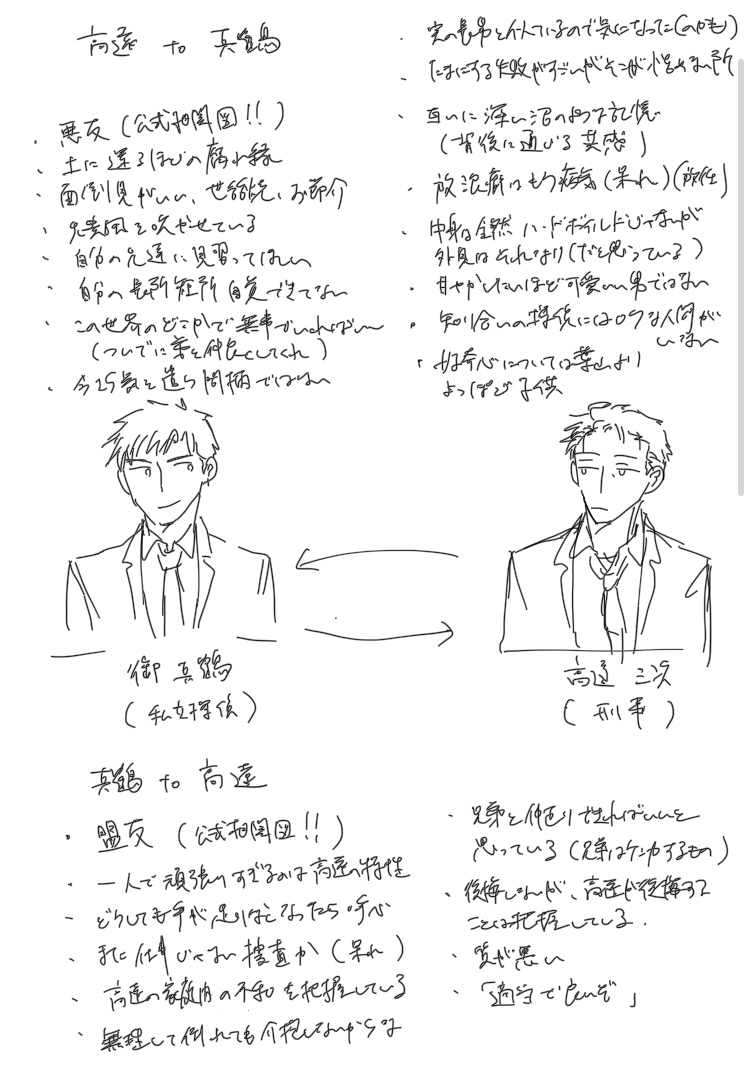 高遠 to 真鶴
・悪友（公式相関図!!）
・土に還るほどの腐れ縁
・面倒見がいい、世話焼き、お節介
・先輩風を吹かせている
・自分の兄達に見習ってほしい
・自分の長所短所自覚できてない
・この世界のどこかで無事でいればいい
（ついでに弟と仲良くしてくれ）
・今さら気を遣う間柄ではない
・実の長男と似ているので気になった（のかも）
・たまにする失敗がすごいがそこが憎めない所
・互いに深い沼のような記憶
（背後に通じる共感）
・放浪癖はもう病気（呆れ）
・中身は全然ハードボイルドじゃないが
外見はそれなり（だと思っている）
・甘やかしたいほど可愛い男ではない
・知り合いの探偵にはロクな人間が
いない
・好奇心については葉山より
よっぽど子供
御 真鶴
（私立探偵）
高遠 三次
（刑事）
真鶴 to 高遠
・盟友（公式相関図!!）
・一人で頑張りすぎるのは高遠の特性
・どうしても手が足りなくなったら呼ぶ
・また仕事じゃない捜査か（呆れ）
・高遠の家庭内の不和を把握している
・無理して倒れても介抱しないからな
・兄弟と仲直りできればいいと
思っている（兄弟はケンカするもの）
・後悔しないが、高遠が後悔する
ことは把握している.
・質が悪い
・「適当で良いぞ」